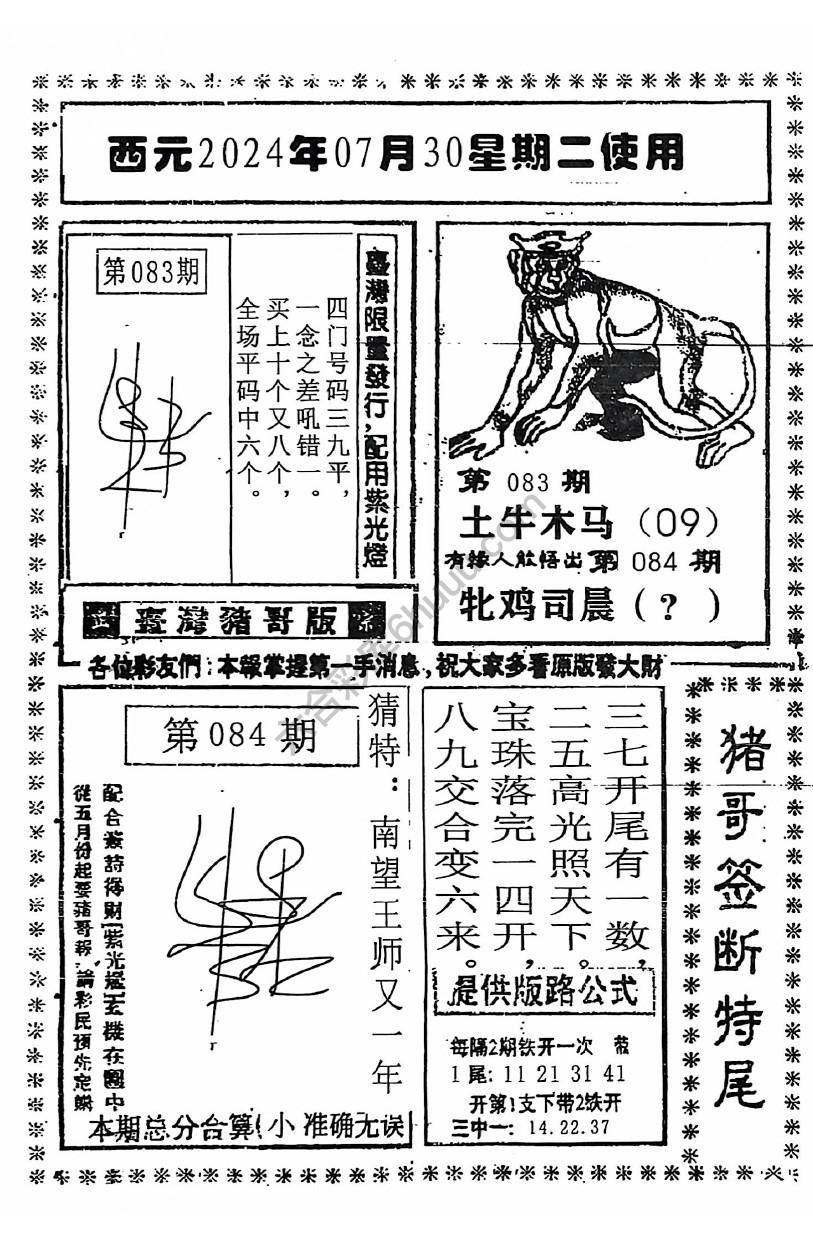 西元2024年07月30星期二使用
第083期
臺灣限量發行,配用紫光燈
四门号码三九平,
一念之差吼错一。
买上十个又八个,
全场平码中六个。
第 083 期
土牛木马(09)
有緣人能悟出第 084 期
牝鸡司晨(?)
臺灣猪哥版
各位彩友們:本報掌握第一手消息,祝大家多看原版發大財
第084期
猜特:南望王师又一年
配合簽詩得財(紫光燈)玄機在圖中
從五月份起要豬哥報,請彩民預先定購
本期总分合算(小 准确无误
三七开尾有一数,
二五高光照天下。
宝珠落完一四开,
八九交合变六来。
提供版路公式
每隔2期铁开一次 带
1尾: 11 21 31 41
开第1支下带2铁开
三中一: 14.22.37
猪哥签断特尾